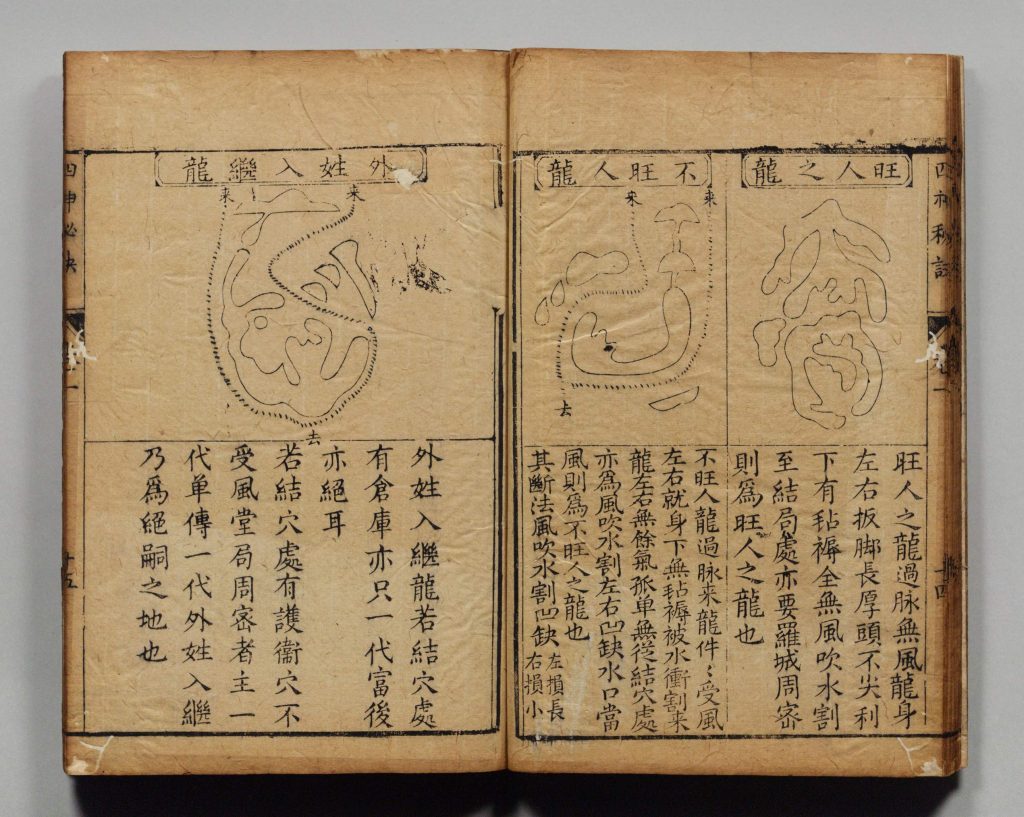 四神秘訣
卷一
十四
旺人之龍
旺人之龍過脉無風龍身
左右扳脚長厚頭不尖利
下有毡褥全無風吹水割
至結局處亦要羅城周密
則爲旺人之龍也
不旺人龍
来
来
去
不旺人龍過脉来龍件〻受風
左右就身下無毡褥被水衝割来
龍左右無餘氣孤单無從結穴處
亦爲風吹水割左右凹缺水口當
風則爲不旺人之龍也
其斷法風吹水割凹缺
左損長
右損小
外姓入繼龍
来
来
去
外姓入繼龍若結穴處
有倉庫亦只一代富後
亦絕耳
若結穴處有護衞穴不
受風堂局周密者主一
代单傳一代外姓入繼
乃爲絕嗣之地也
四申必決
十五